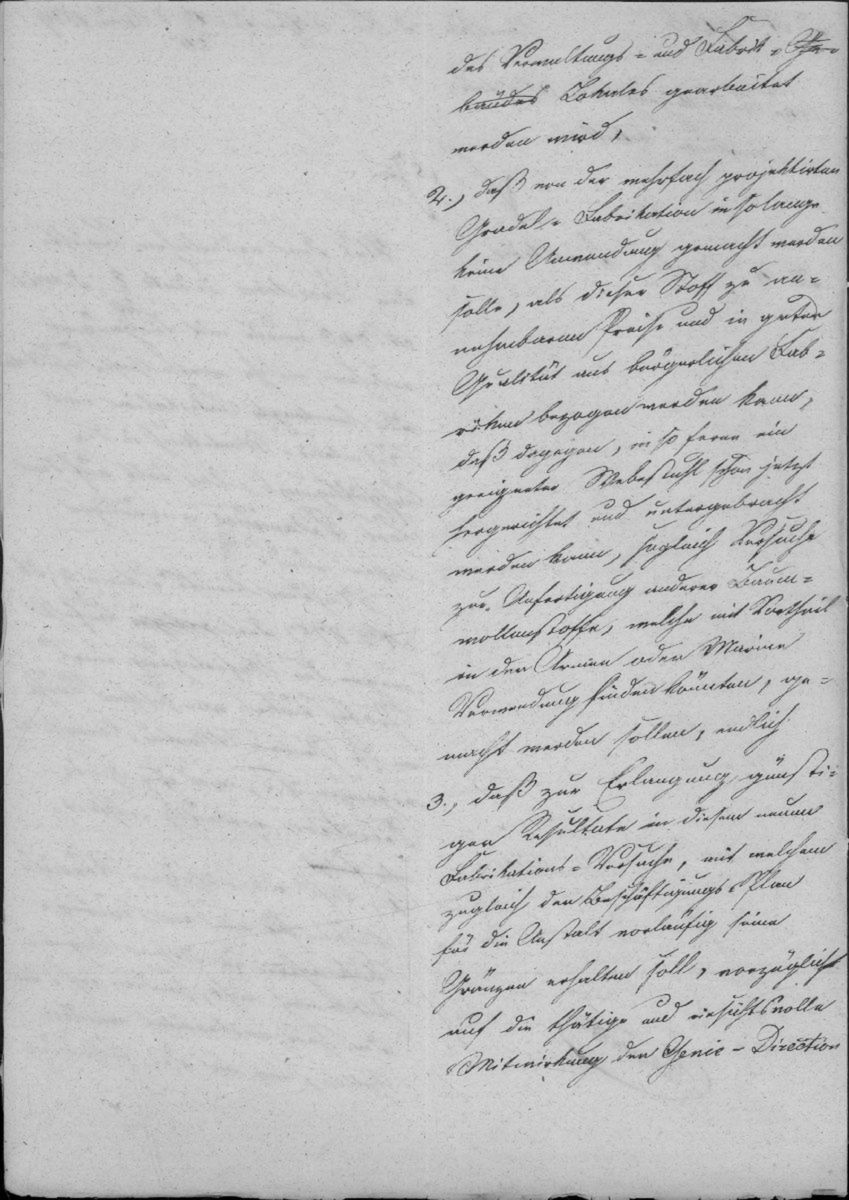 des Verwaltungs- und Fabrik-Ge-
bäudes Lokales gearbeitet
werden wird,
2., daß von der mehrfach projektirten
Gradel-Fabrikation insolange
keine Anwendung gemacht werden
solle, als dieser Stoff zu an-
nehmbarem Preise und in guter
Qualität aus bürgerlichen Fab-
riken bezogen werden kann,
daß dagegen, in so ferne ein
geeigneter Webestuhl schon jetzt
hergerichtet und untergebracht
werden kann, sogleich Versuche
zur Anfertigung anderer Baum-
wollenstoffe, welche mit Vortheil
in der Armee oder Marine
Verwendung finden könnten, ge-
macht werden sollen, endlich
3., daß zur Erlangung günsti-
ger Resultate in diesem neuen
Fabrikations-Versuche, mit welchem
zugleich der Beschäftigungs-Plan
für die Anstalt vorläufig seine
Gränzen erhalten soll, vorzüglich
auf die thätige und einsichtsvolle
Mitwirkung der Genie-Direction